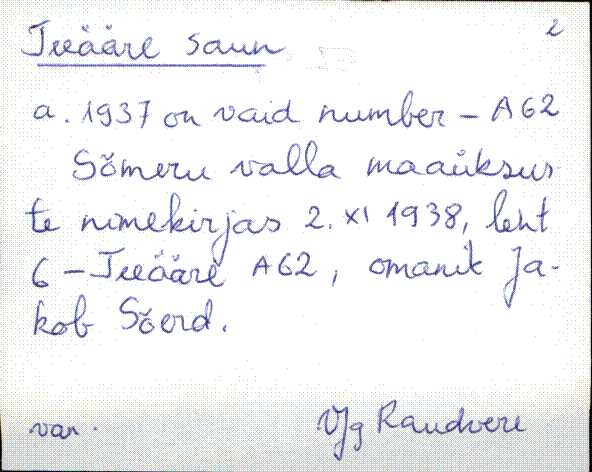 2
Teeääre saun
a. 1937 on vaid number – A62
Sõmeru valla maaüksus
te nimekirjas 2. XI 1938, leht
6 – Teeääre A62, omanik Ja-
kob Sõerd.
van. VJg Raudvere